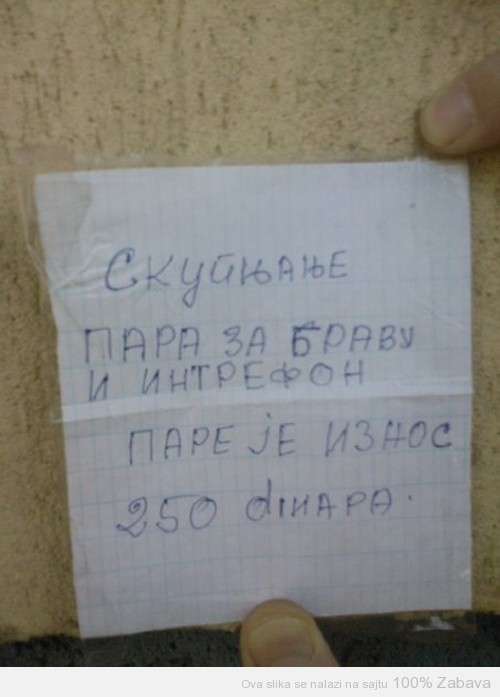 Скупњање
ПАРА ЗА БРАВУ
И ИНТРЕФОН
ПАРЕ ЈЕ ИЗНОС
250 dINAPA.
Ova slika se nalazi na sajtu 100% Zabava